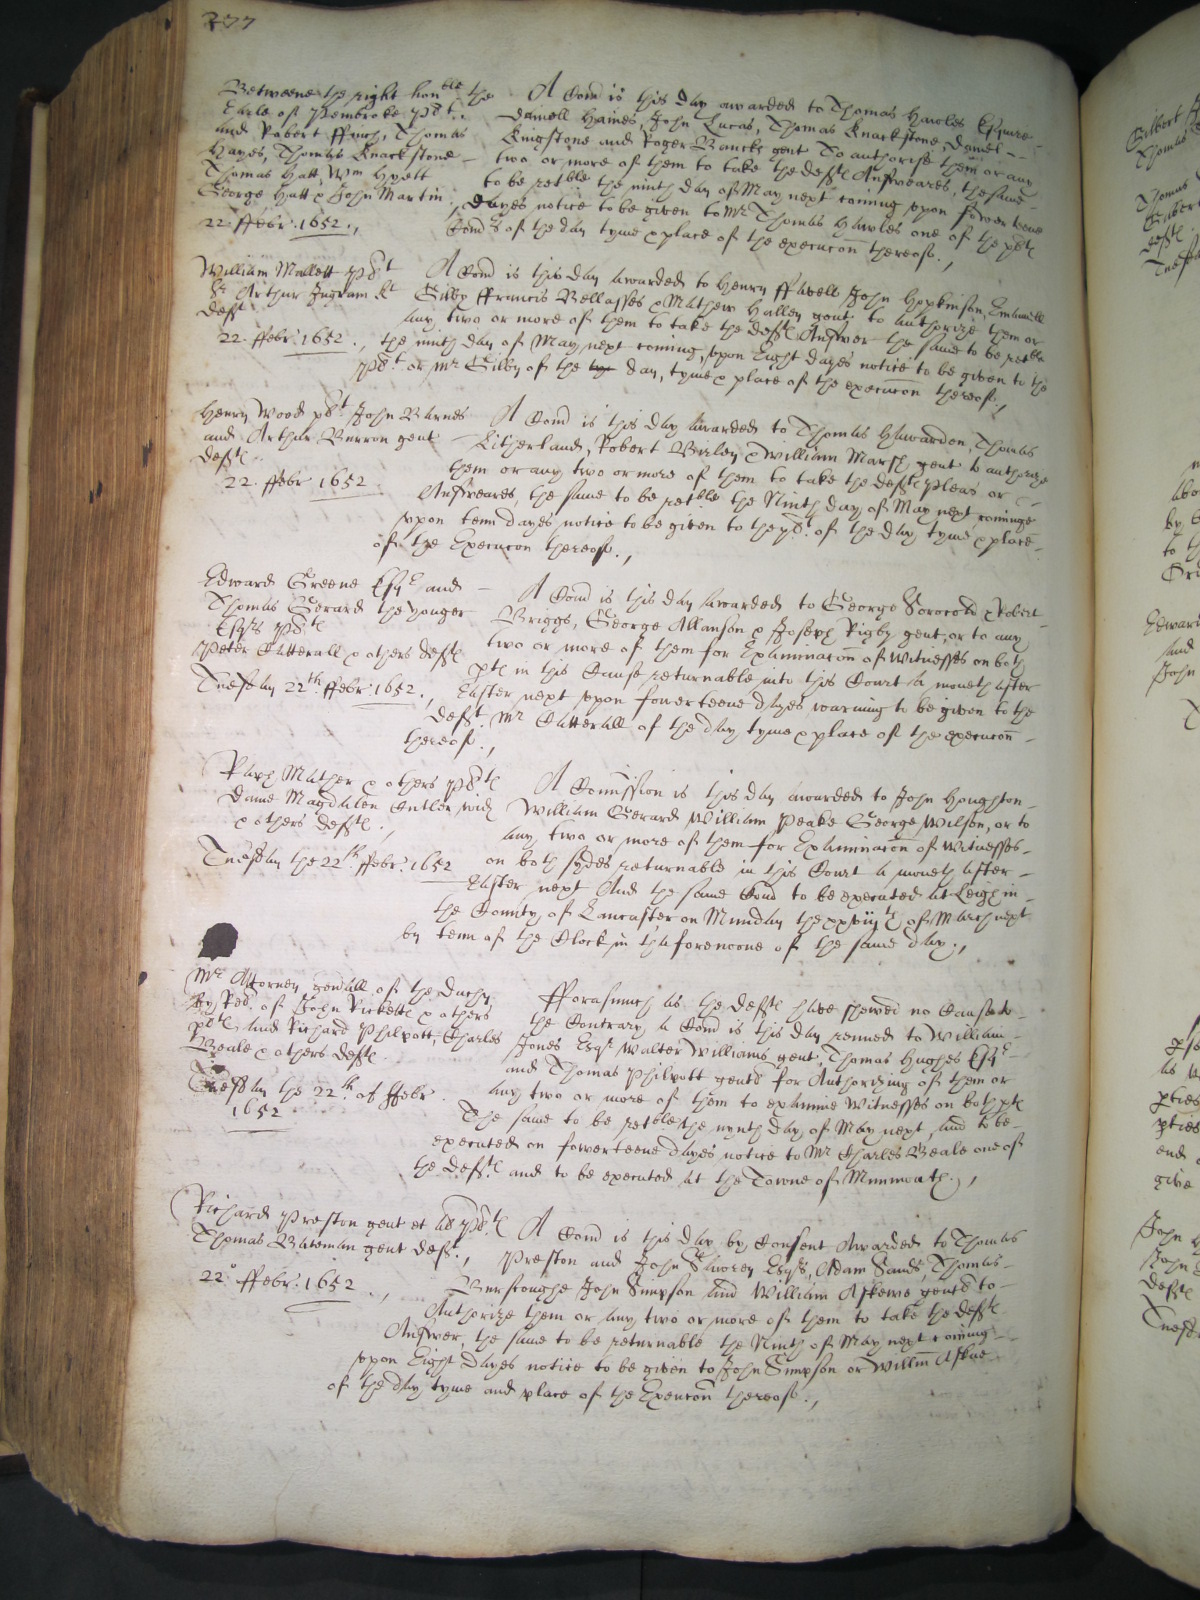 277
Betweene the right hon:ble the
Earle of Pembroke pl:t
and Robert ffinch, Thomas
Hayes, Thomas Knackstone
Thomas Hatt Wm Hyett
George Hatt & John Martin
22 ffebr: 1652
A Com̃ is this day awarded to Thomas Hawles Esquire
Daniell Haines, John Lucas, Thomas Knackstone, Daniel
Kingstone and Roger Bancks gent To authorise them or any
two or more of them to take the def:ts Answeares, the same
to be ret:ble the ninth day of May next coming upon fowerteene
dayes notice to be given to Mr Thomas Hawles one of the
Com:rs of the day tyme & place of the execucon thereof
William Mallett pl:t
Sr Arthur Ingram Kt
def:t
22 ffebr: 1652
A Com̃ is this day awarded to Henry ffavell John Hopkinson, Emanuell
Gilby ffrancis Bellasses & Mathew Halley gent, to authorize them or
any two or more of them to take the def:ts Answer the same to be ret:ble
the ninth day of May next coming, upon Eight dayes notice to be given to the
pl:t or Mr Gilby of the day, tyme & place of the execucon thereof
Henry Wood pl:t John Barnes
and Arthur Burron gent
def:ts
22 ffebr 1652
A Com̃ is this day awarded to Thomas Hawarden, Thomas
Litherland, Robert Birley & William Marsh, gent to authorize
them or any two or more of them to take the def:ts pleas or
Answeares, the same to be ret:ble the Ninth day of May next cominge
upon tenn dayes notice to be given to the pl:t of the day tyme & place
of the Execucon thereof
Edward Greene Esqr and
Thomas Gerard the yonger
Esqrs pl:ts
Peter Catterall & others def:ts
Tuesday 22th ffebr: 1652
A Com̃ is this day awarded to George Sorocold & Robert
Briggs, George Allanson & Joseph Rigby gent, or to any
two or more of them for Examinacon of Witnesses on both
pts in this Cause returnable into this Court a moneth after
Easter next upon fowerteene dayes warning to be given to the
def:t Mr Catterall of the day tyme & place of the execucon
thereof
Mather & others pl:ts
Dame Magdalen Cutler wid
& others def:ts
Tuesday the 22th ffebr: 1652
A Comission is this day awarded to John Houghton
William Gerard William Peake George Wilson, or to
any two or more of them for Examinacon of Witnesses
on both sydes returnable in this Court a moneth after
Easter next And the same Com̃ to be executed at Leigh in
the County of Lancaster on Munday the xxviijth of March next
by tenn of the Clock in the forenoone of the same day
Mr Attorney gen̄all of the Duchy
by Rel: of John Ricketts & others
pl:ts and Richard Philpott, Charles
Beale & others def:ts
Tuesday the 22th of ffebr
1652
fforasmuch as the def:ts have shewed no Cause to
the Contrary a Com̃ is this day renued to William
Jones Esqr Walter Williams gent, Thomas Hughes Esqr
and Thomas Philpott gents for Authorizing of them or
any two or more of them to examine Witnesses on both pts
The same to be ret:ble the nynth day of May next, and to be
executed on fowerteene dayes notice to Mr Charles Beale one of
the def:ts and to be executed at the Towne of Munmouth
Richard Preston gent et al pl:ts
Thomas Bateman gent def:t
22 ffebr: 1652
A Com̃ is this day by Consent Awarded to Thomas
Preston and John Sawrey Esqrs, Adam Sands, Thomas
Burscoughe John Simpson and William Askewe gents to
Authorize them or any two or more of them to take the def:ts
Answer the same to be returnable the Ninth of May next coming
upon Eight dayes notice to be given to John Simpson or Willm̃ Askue
of the day tyme and place of the Execucon thereof